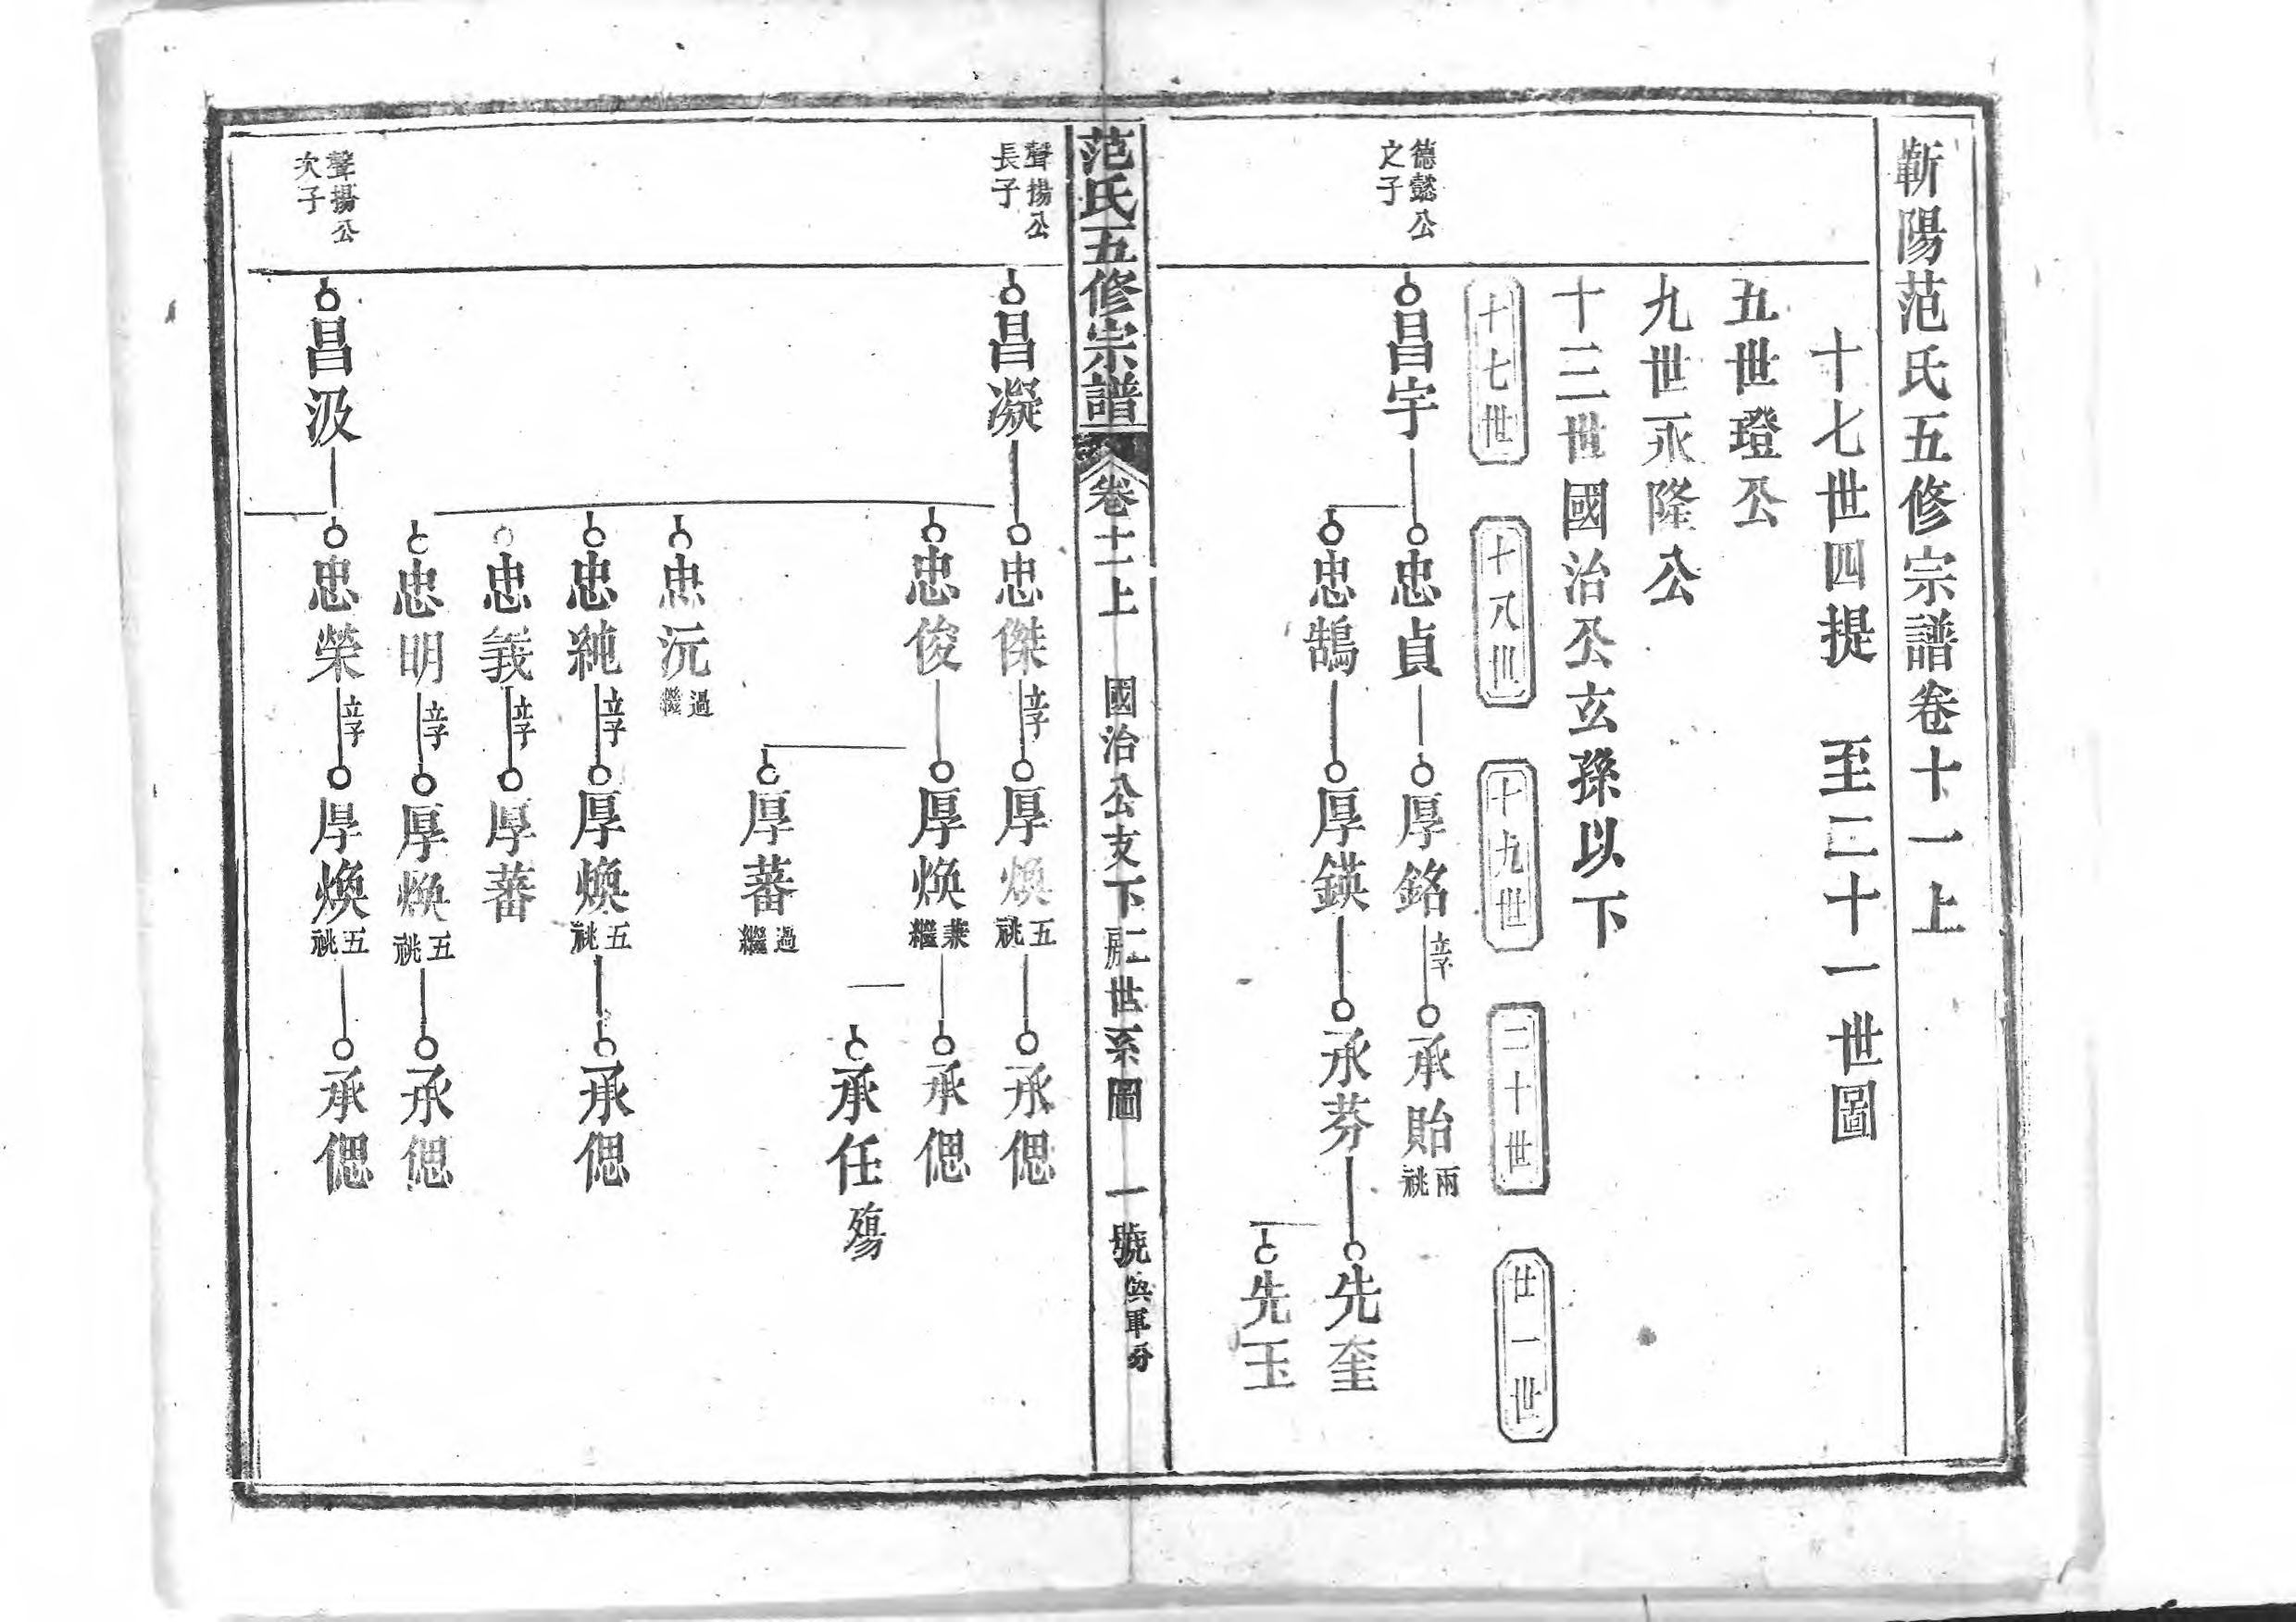 蘄陽范氏五修宗譜卷十一上
十七世四提　至二十一世圖
五世璒公
九世永隆公
十三世國治公玄孫以下
十七世
十八世
十九世
二十世
廿一世
德懿公
之子
昌宇
忠貞
厚銘
立子
承貽
兩
祧
忠鵠
厚鍈
承芬
先奎
先玉
范氏五修宗譜
卷十一上
國治公支下二房世系圖
一號
聲揚公
長子
昌凝
忠傑
立子
厚煥
五
祧
承偲
忠俊
厚煥
兼
繼
承偲
承任殤
厚蕃
過
繼
忠沅
過
繼
忠純
立子
厚煥
五
祧
承偲
忠義
立子
厚蕃
忠明
立子
厚煥
五
祧
承偲
聲揚公
次子
昌汲
忠榮
立子
厚煥
五
祧
承偲